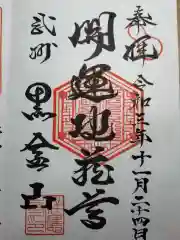 奉拝
令和三年十一月二十四日
開運地蔵尊
武州
黒金山